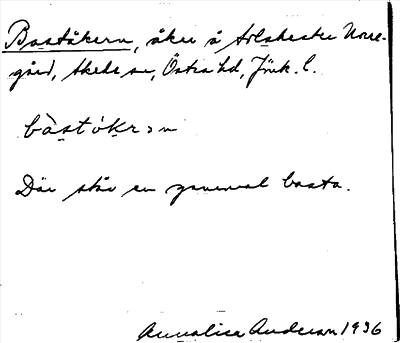 Baståkern, åker å Arlabester Norre-
gård, Skeda sn, Östra hd, Jönk. l.
bàstókrɔn
Där står en gammal basta.
Annalisa Anderson 1936